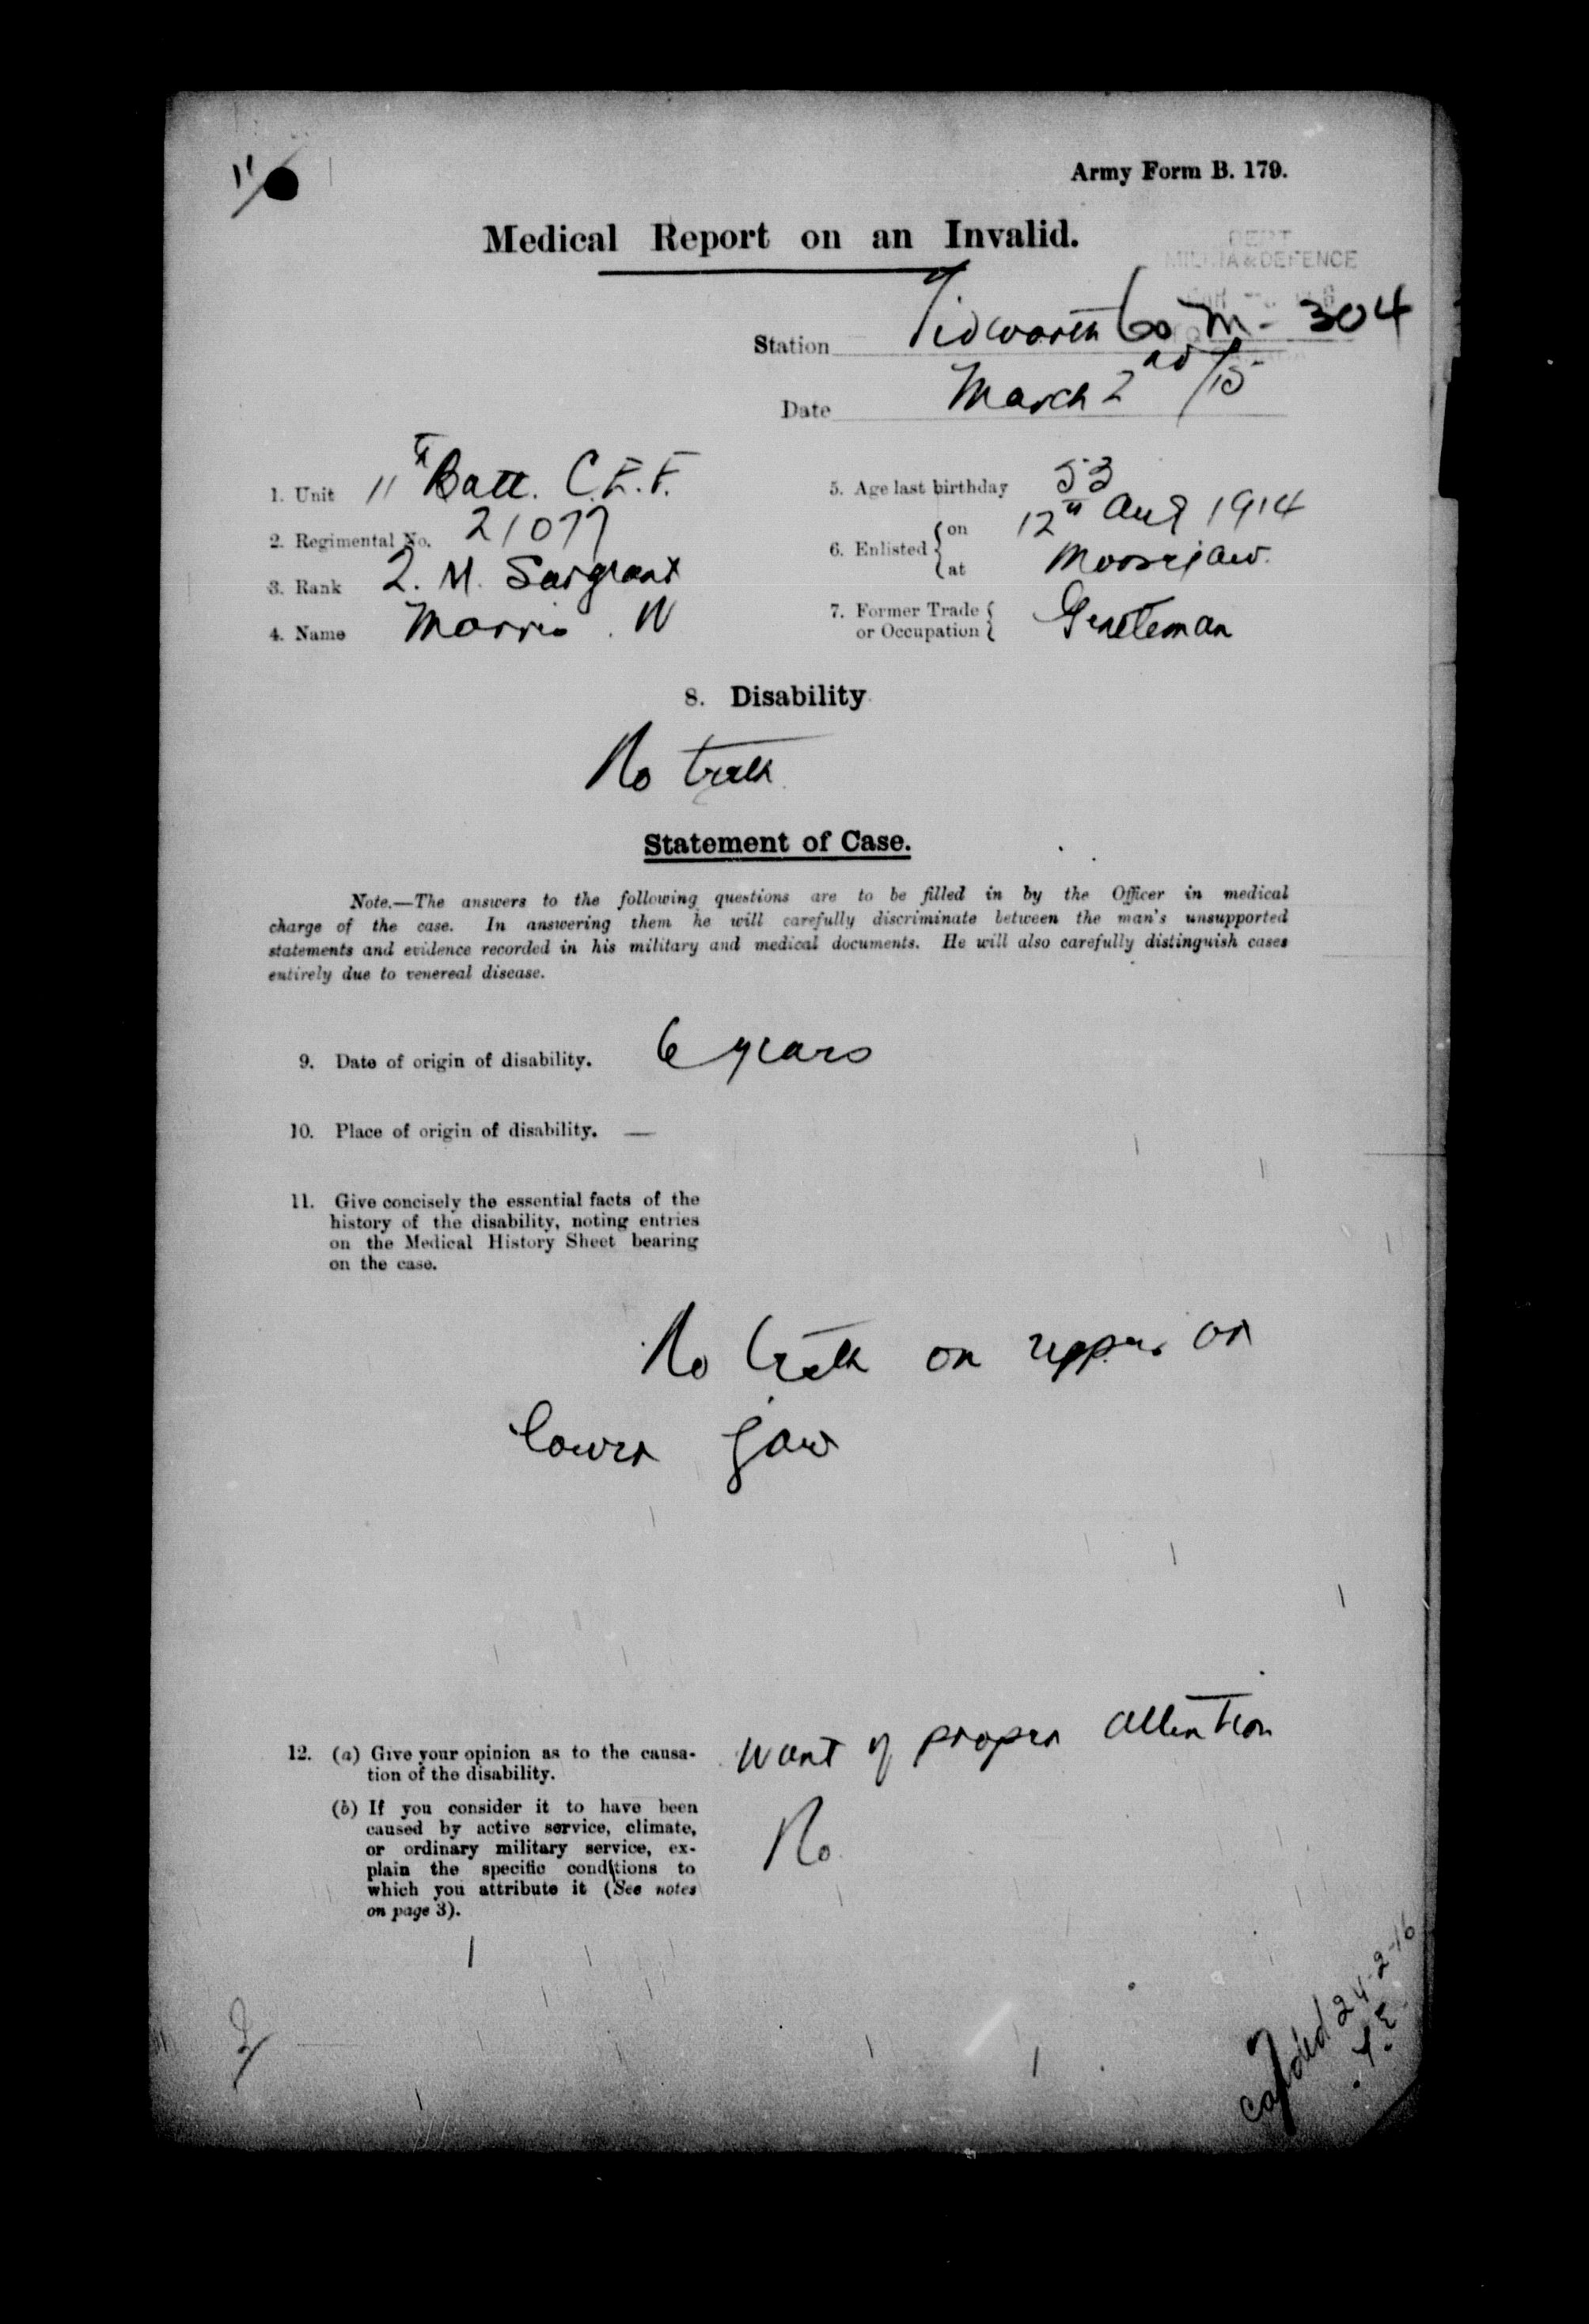 11
Army Form B. 179.
Medical Report on an Invalid.
DEPT
MILITIA & DEFENCE
Station Tidworth 60 M - 304
Date March 2nd /15
1. Unit 11th Batt. C.E.F.
2. Regimental No. 21077
3. Rank Q. M. Sargeant
4. Name Morris . W
5. Age last birthday 53
6. Enlisted { on 12th Aug 1914
at Moosejaw.
7. Former Trade or Occupation { Gentleman
8. Disability
No teeth
Statement of Case.
Note.—The answers to the following questions are to be filled in by the Officer in medical
charge of the case. In answering them he will carefully discriminate between the man's unsupported
statements and evidence recorded in his military and medical documents. He will also carefully distinguish cases
entirely due to venereal disease.
9. Date of origin of disability. 6 years
10. Place of origin of disability. —
11. Give concisely the essential facts of the
history of the disability, noting entries
on the Medical History Sheet bearing
on the case.
No teeth on upper or
lower jaw
12. (a) Give your opinion as to the causa-
tion of the disability.
Want of proper attention
(b) If you consider it to have been
caused by active service, climate,
or ordinary military service, ex-
plain the specific conditions to
which you attribute it (See notes
on page 3).
No
Carded 24-2-16